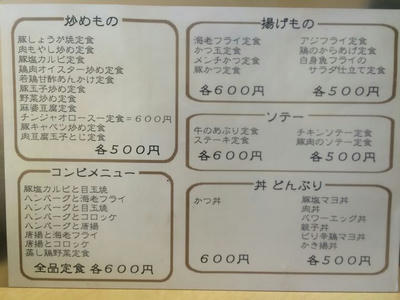 炒めもの
豚しょうが焼定食
肉もやし炒め定食
豚塩カルビ定食
鶏肉オイスター炒め定食
若鶏甘酢あんかけ定食
豚玉子炒め定食
野菜炒め定食
麻婆豆腐定食
チンジャオロース一定食＝６００円
豚キャベツ炒め定食
肉豆腐玉子とじ定食
各５００円
コンビメニュー
豚塩カルビと目玉焼
ハンバーグと海老フライ
ハンバーグとコロッケ
ハンバーグと唐揚
唐揚と海老フライ
唐揚とコロッケ
蒸し鶏野菜定食
全品定食 各６００円
揚げもの
海老フライ定食
かつ玉定食
メンチかつ定食
豚かつ定食
各６００円
アジフライ定食
鶏のからあげ定食
白身魚フライの
サラダ仕立て定食
各５００円
ソテー
牛のあぶり定食
ステーキ定食
各６００円
チキンソテー定食
豚肉のソテー定食
各５００円
丼 どんぶり
かつ丼
６００円
豚塩マヨ丼
肉丼
パワーエッグ丼
親子丼
ピリ辛鶏マヨ丼
かき揚丼
各５００円